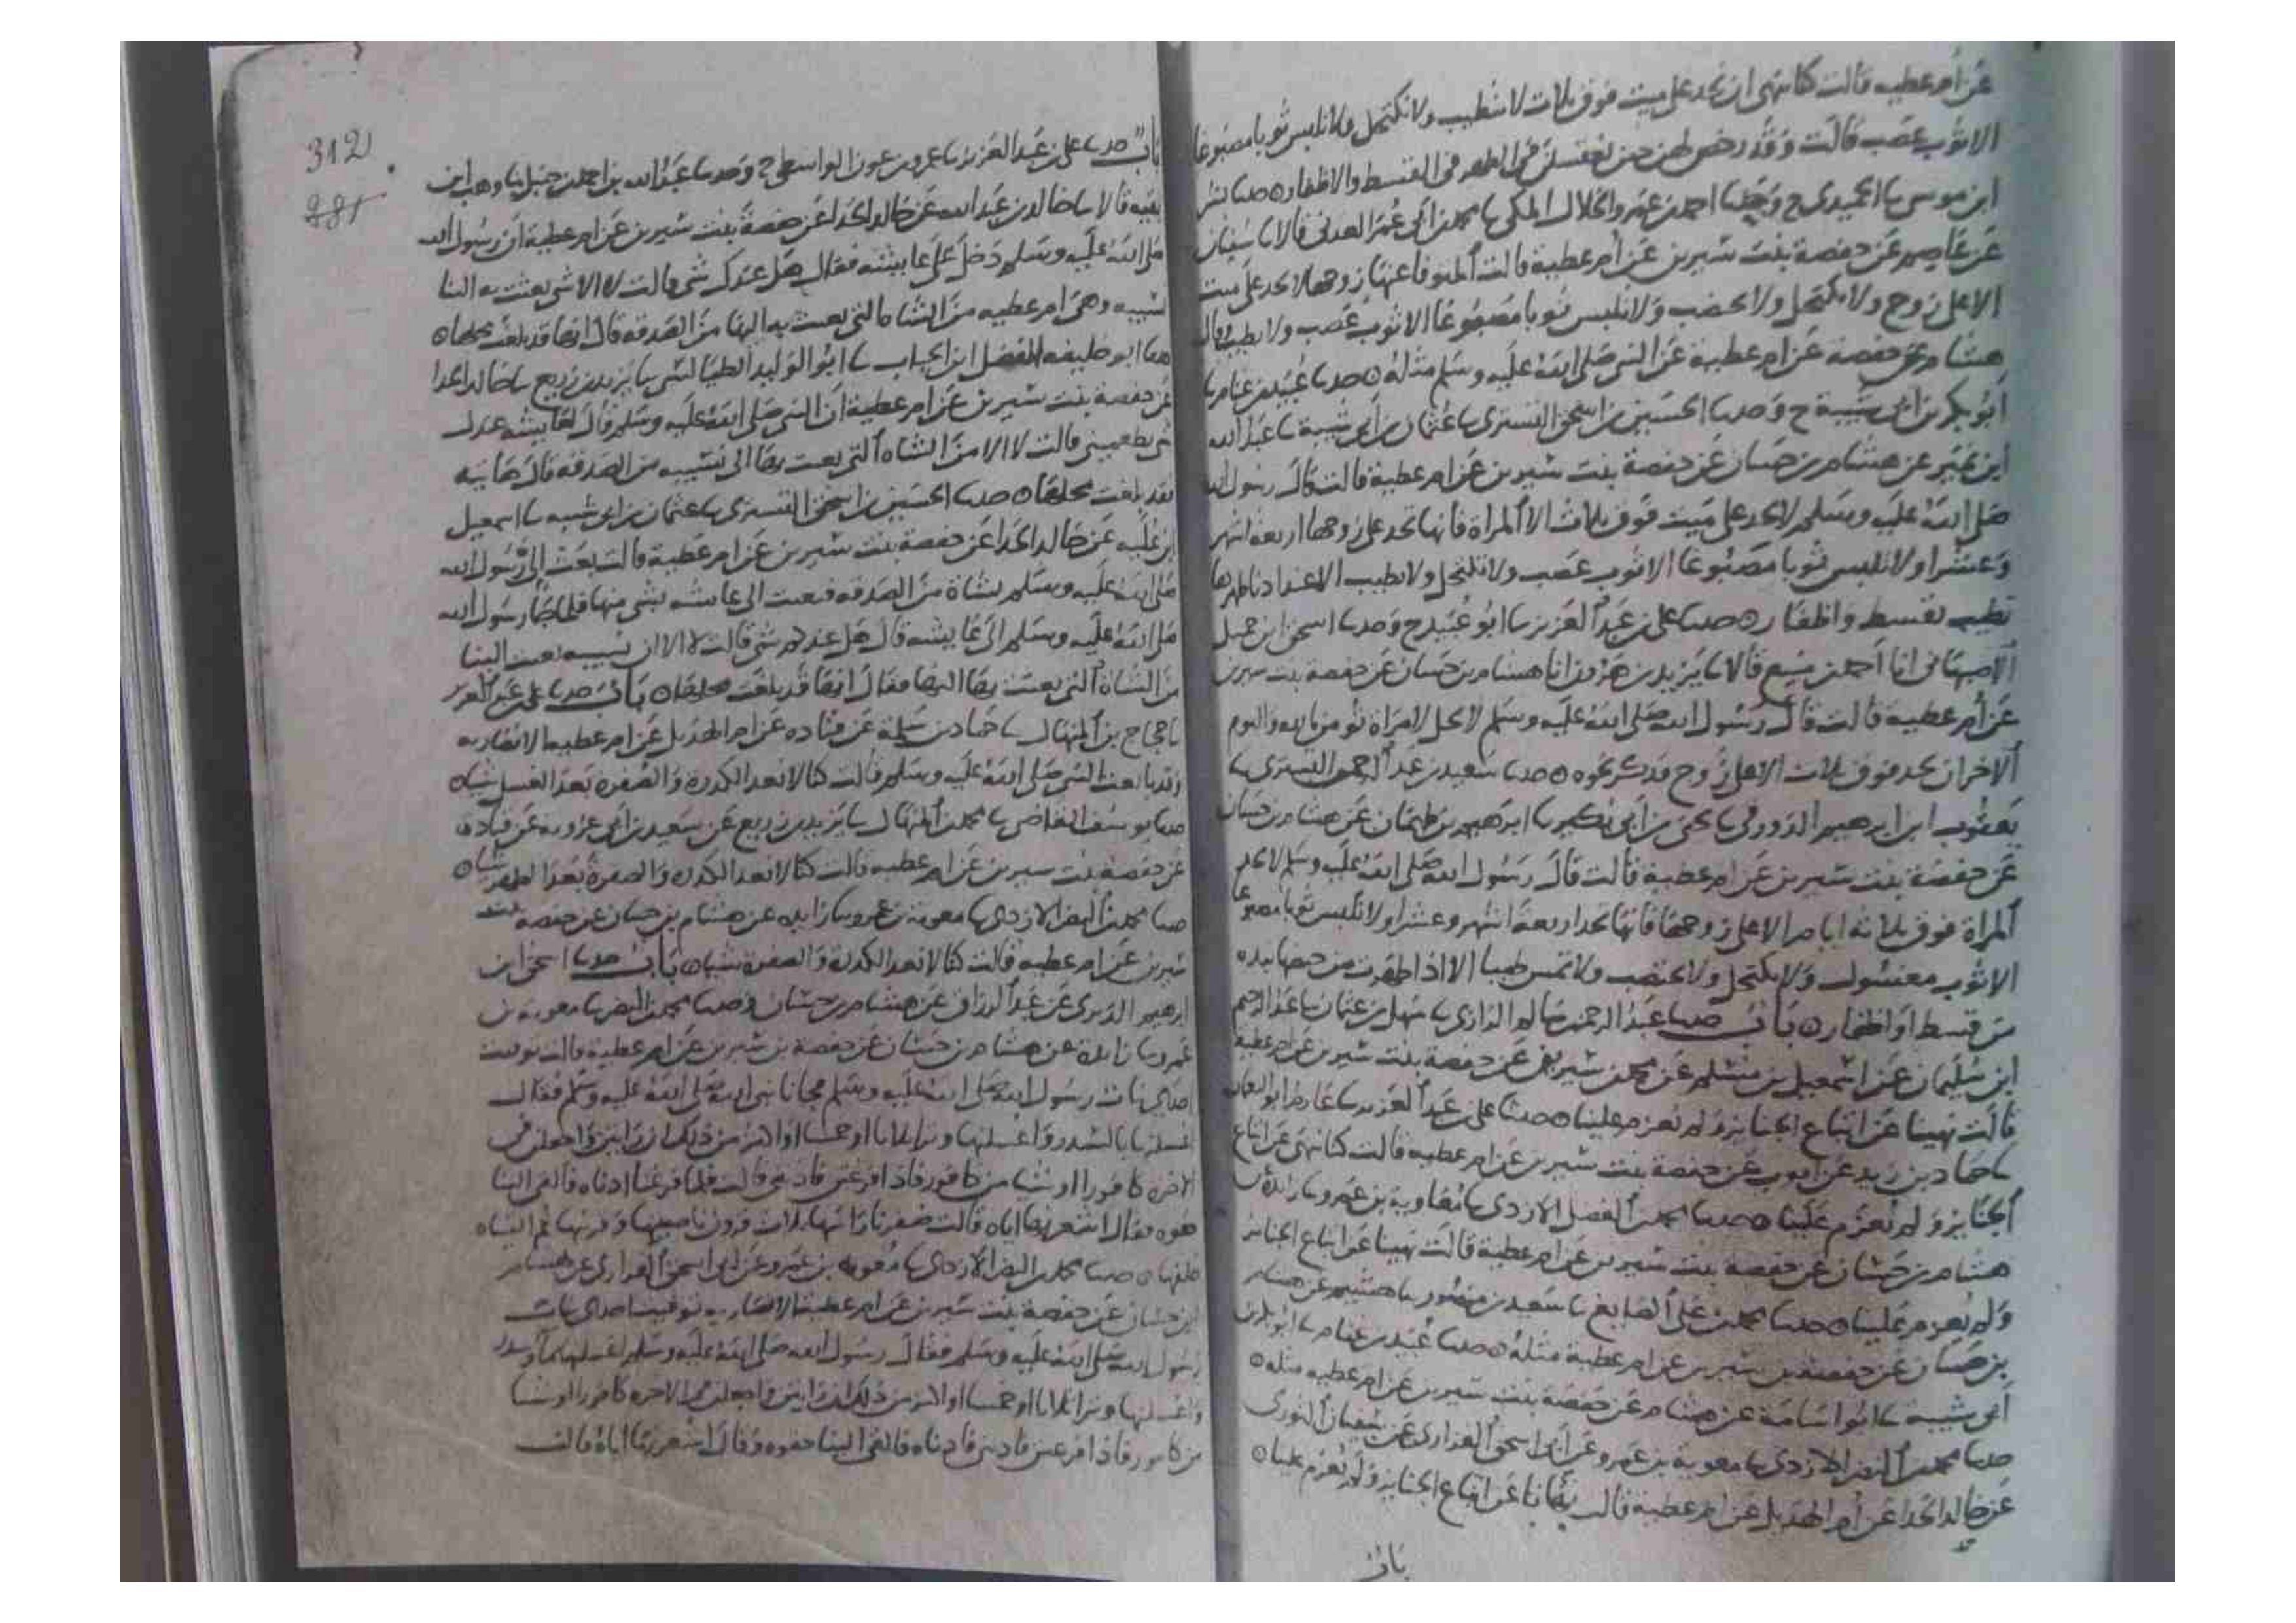 عن ام عطيه قالت كنا ننهى ان نحد على ميت فوق ثلاث لا نتطيب ولا نكتحل ولا نلبس ثوبا مصبوغا
الا ثوب عصب قالت وقد رخص لهن حين تغتسل في الطهر في القسط والاظفار حدثنا بشر
ابن موسى ثنا الحميدي ح وحدثنا احمد بن عمرو الخلال المكي ثنا محمد بن ابي عمر العدني قالا ثنا سفيان
عن عاصم عن حفصة بنت سيرين عن ام عطية قالت المتوفا عنها زوجها لا تحد على ميت
الا على زوج ولا تكتحل ولا تختضب ولا تلبس ثوبا مصبوغا الا ثوب عصب ولا تطيب
هشام عن حفصة عن ام عطية عن النبي صلى الله عليه وسلم مثله حدثنا عبيد بن غنام ثنا
ابو بكر بن ابي شيبة ح وحدثنا الحسين بن اسحق التستري ثنا عثمان بن ابي شيبة ثنا عبد الله
ابن نمير عن هشام بن حسان عن حفصة بنت سيرين عن ام عطية قالت قال رسول الله
صلى الله عليه وسلم لا يحد على ميت فوق ثلاث الا المراة فانها تحد على زوجها اربعة اشهر
وعشرا ولا تلبس ثوبا مصبوغا الا ثوب عصب ولا تكتحل ولا تطيب الا عند ادنا طهرها
تطيب بقسط واظفار حدثنا علي بن عبد العزيز ثنا ابو عبيد ح وحدثنا اسحق ابن جميل
الاصبهاني انا احمد بن منيع قالا ثنا يزيد بن هرون انا هشام بن حسان عن حفصة بنت سيرين
عن ام عطية قالت قال رسول الله صلى الله عليه وسلم لا يحل لامراة تومن بالله واليوم
الاخر ان تحد فوق ثلاث الا على زوج فذكر نحوه حدثنا سعيد بن عبد الرحمن التستري ثنا
يعقوب ابن ابرهيم الدورقي ثنا يحيى بن ابي بكير ثنا ابرهيم بن طهمان عن هشام بن حسان
عن حفصة بنت سيرين عن ام عطية قالت قال رسول الله صلى الله عليه وسلم لا تحد
المراة فوق ثلاثه ايام الا على زوجها فانها تحد اربعة اشهر وعشرا ولا تلبس ثوبا مصبوغا
الا ثوب مغسول ولا تكتحل ولا تختضب ولا تمس طيبا الا اذا طهرت من حيضها نبذه
من قسط او اظفار باب حدثنا عبد الرحمن بن سالم الرازي ثنا سهل بن عثمان ثنا عبد الرحيم
ابن سليمان عن اسمعيل بن مسلم عن محمد بن سيرين عن حفصة بنت سيرين عن ام عطية
قالت نهينا عن اتباع الجنايز ولم يعزم علينا حدثنا علي بن عبد العزيز ثنا عارم ابو النعمان
ثنا حماد بن زيد عن ايوب عن حفصة بنت سيرين عن ام عطيه قالت كنا ننهى عن اتباع
الجنايز ولم يعزم علينا حدثنا محمد بن الفضل الازدي ثنا معاوية بن عمرو ثنا زائدة بن
هشام بن حسان عن حفصة بنت سيرين عن ام عطية قالت نهينا عن اتباع الجنائز
ولم يعزم علينا حدثنا محمد بن علي الصايغ ثنا سعيد بن منصور ثنا هشيم عن هشام
بن حسان عن حفصة بن سيرين عن ام عطية مثله حدثنا عبيد بن غنام ثنا ابو بكر بن
ابي شيبة ثنا ابو اسامة عن هشام عن حفصة بنت سيرين عن ام عطيه مثله
حدثنا محمد بن النضر الازدي ثنا معوية بن عمرو عن ابي اسحق الفزاري عن سفيان الثوري
عن خالد الحذا عن ام الهذيل عن ام عطية قالت نهانا عن اتباع الجنايز ولم يعزم علينا
باب
312
281
باب حدثنا علي بن عبد العزيز ثنا عمرو بن عون الواسطي ح وحدثنا عبد الله بن احمد بن حنبل ثنا وهب ابن
بقيه قالا ثنا خالد بن عبد الله عن خالد الحذا عن حفصة بنت سيرين عن ام عطية ان رسول الله
صلى الله عليه وسلم دخل على عايشه فقال هل عندك شي قالت لا الا شي بعثت به الينا
نسيبه وهي ام عطيه من الشاه التي بعث به اليها من الصدقه قال انها قد بلغت محلها
حدثنا ابو خليفه الفضل ابن الحباب ثنا ابو الوليد الطيالسي ثنا يزيد بن زريع ثنا خالد الحذا
عن حفصة بنت سيرين عن ام عطية ان النبي صلى الله عليه وسلم قال لعايشه عندك
شي تطعميني قالت لا الا من الشاه التي بعث بها الى نسيبه من الصدقه قال هاتيه
فقد بلغت محلها حدثنا الحسين بن اسحق التستري ثنا عثمان بن ابي شيبه ثنا اسمعيل
ابن عليه عن خالد الحذا عن حفصة بنت سيرين عن ام عطية قالت بعث الي رسول الله
صلى الله عليه وسلم بشاة من الصدقه فبعث الى عايشه بشي منها فلما جا رسول الله
صلى الله عليه وسلم الى عايشه قال هل عندكم شي قالت لا الا ان نسيبه بعث الينا
من الشاة التي بعثت بها اليها فقال انها قد بلغت محلها باب حدثنا علي بن عبد العزيز
ثنا حجاج بن المنهال ثنا حماد بن سلمة عن قتاده عن ام الهذيل عن ام عطيه الانصاريه
وقد بايعت النبي صلى الله عليه وسلم قالت كنا لا نعد الكدرة والصفره بعد الغسل شيا
حدثنا يوسف القاضي ثنا محمد بن المنهال ثنا يزيد بن زريع عن سعيد بن ابي عروبه عن قتاده
عن حفصة بنت سيرين عن ام عطيه قالت كنا لا نعد الكدره والصفرة بعد الطهر شيا
حدثنا محمد بن النضر الازدي ثنا معوية بن عمرو ثنا زايده عن هشام بن حسان عن حفصة بنت
سيرين عن ام عطيه قالت كنا لا نعد الكدرة والصفرة شيا باب حدثنا اسحق ابن
ابرهيم الدبري عن عبد الرزاق عن هشام بن حسان وحدثنا محمد بن النضر ثنا معوية بن
عمرو ثنا زايدة عن هشام بن حسان عن حفصة بن سيرين عن ام عطية قالت توفيت
احدى بنات رسول الله صلى الله عليه وسلم فجانا نبي الله صلى الله عليه وسلم فقال
اغسلنها بالسدر واغسلنها وترا ثلاثا او خمسا او اكثر من ذلك ان رايتن واجعلن في
الاخره كافورا او شيا من كافور فاذا فرغتن فاذنني قالت فلما فرغنا اذناه فالقى الينا
حقوه فقال اشعرنها اياه قالت ضفرنا راسها ثلاث قرون ناصيتها وقرنيها ثم القيناه
خلفها حدثنا محمد بن النضر الازدي ثنا معويه بن عمرو عن ابي اسحق الفزاري عن هشام
ابن حسان عن حفصة بنت سيرين عن ام عطية الانصاريه توفيت احدى بنات
رسول الله صلى الله عليه وسلم فقال رسول الله صلى الله عليه وسلم اغسلنها بما وسدر
واغسلنها وترا ثلاثا او خمسا او اكثر من ذلك ان رايتن واجعلن في الاخره كافورا او شيا
من كافور فاذا فرغتن فاذنني فاذناه فالقى الينا حقوه وقال اشعرنها اياه قالت